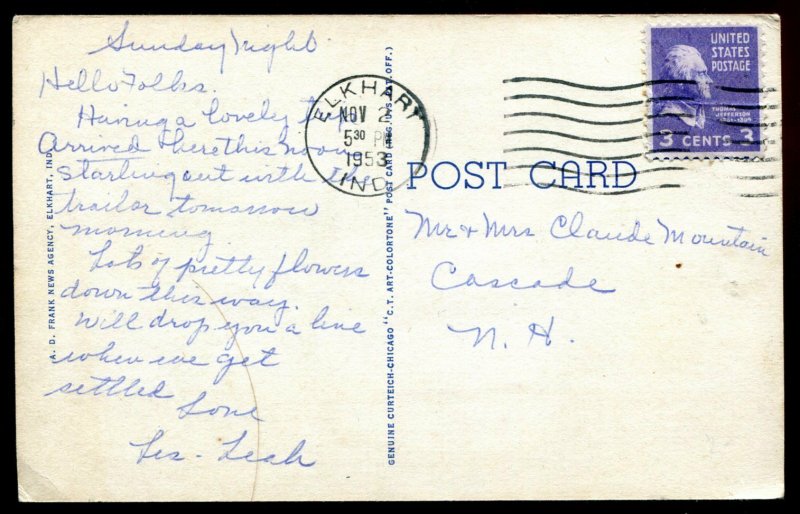 Sunday Night
Hello Folks.
Having a lovely trip
Arrived here this noon
Starting out with the
trailor tomorrow
morning
Lots of pretty flowers
down this way.
Will drop you a line
when we get
settled
Love
Les - Leah
A. D. FRANK NEWS AGENCY, ELKHART, IND.
GENUINE CURTEICH-CHICAGO "C.T. ART-COLORTONE" POST CARD (REG. U.S. PAT. OFF.)
ELKHART
NOV 2
5 30 PM
1953
IND.
UNITED
STATES
POSTAGE
THOMAS
JEFFERSON
3 CENTS 3
POST CARD
Mr & Mrs Claude Mountain
Cascade
N. H.